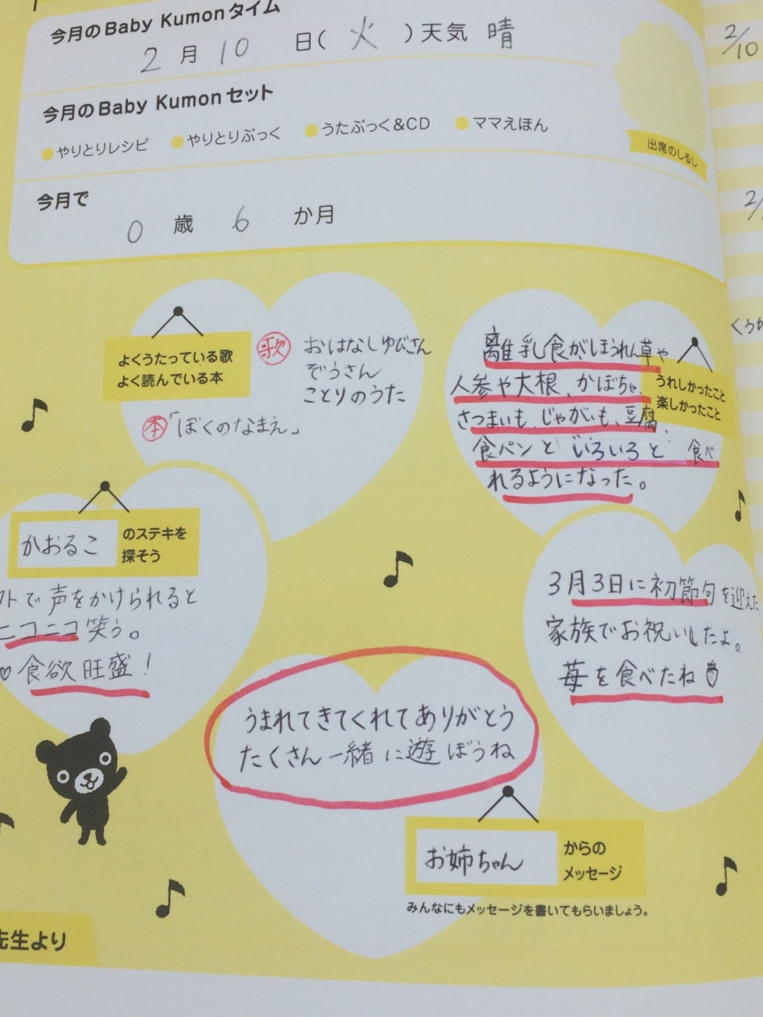 今月のBaby Kumonタイム
2月10日(火)天気 晴
今月のBaby Kumonセット
やりとりレシピ やりとりぶっく うたぶっく&CD ママえほん
出席のしるし
今月で
0歳6か月
よくうたっている歌
よく読んでいる本
歌 おはなしゆびさん
ぞうさん
ことりのうた
本「ぼくのなまえ」
うれしかったこと
楽しかったこと
離乳食がほうれん草や
人参や大根、かぼちゃ、
さつまいも、じゃがいも、豆腐、
食パンといろいろと食べ
れるようになった。
かおるこ のステキを
探そう
で声をかけられると
ニコニコ笑う。
♡食欲旺盛!
3月3日に初節句を迎えた
家族でお祝いしたよ。
苺を食べたね
うまれてきてくれてありがとう
たくさん一緒に遊ぼうね
お姉ちゃん からの
メッセージ
みんなにもメッセージを書いてもらいましょう。
先生より
2/10